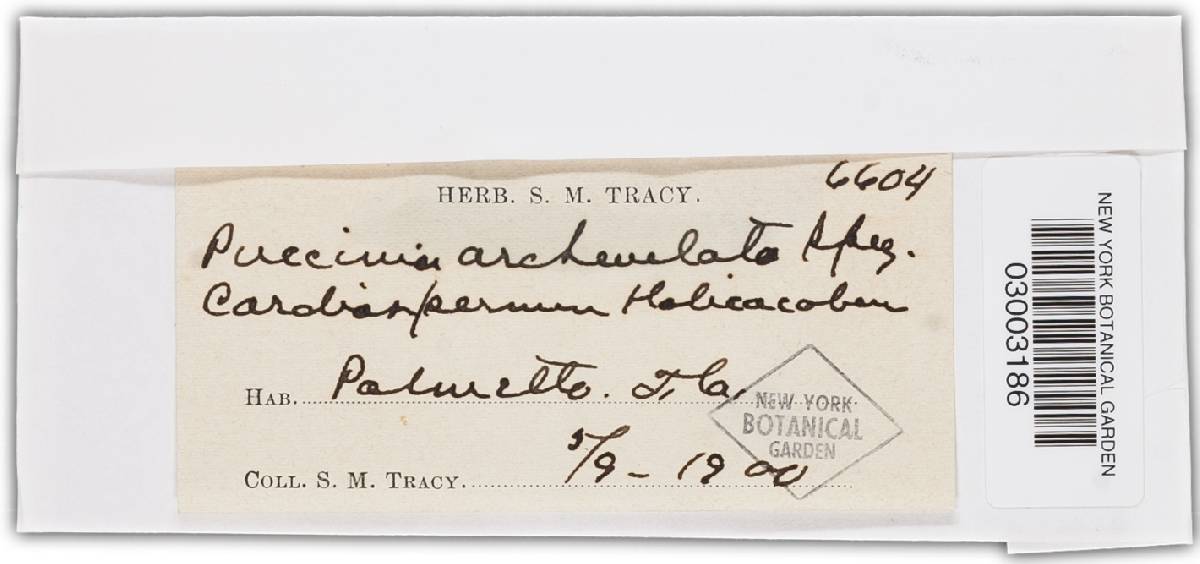 6604
HERB. S. M. TRACY.
Puccinia archevelata Speg.
Cardiospermum Halicacabum
HAB. Palmetto. Fla.
NEW YORK
BOTANICAL
GARDEN
5/9-1900
COLL. S. M. TRACY.
NEW YORK BOTANICAL GARDEN
03003186